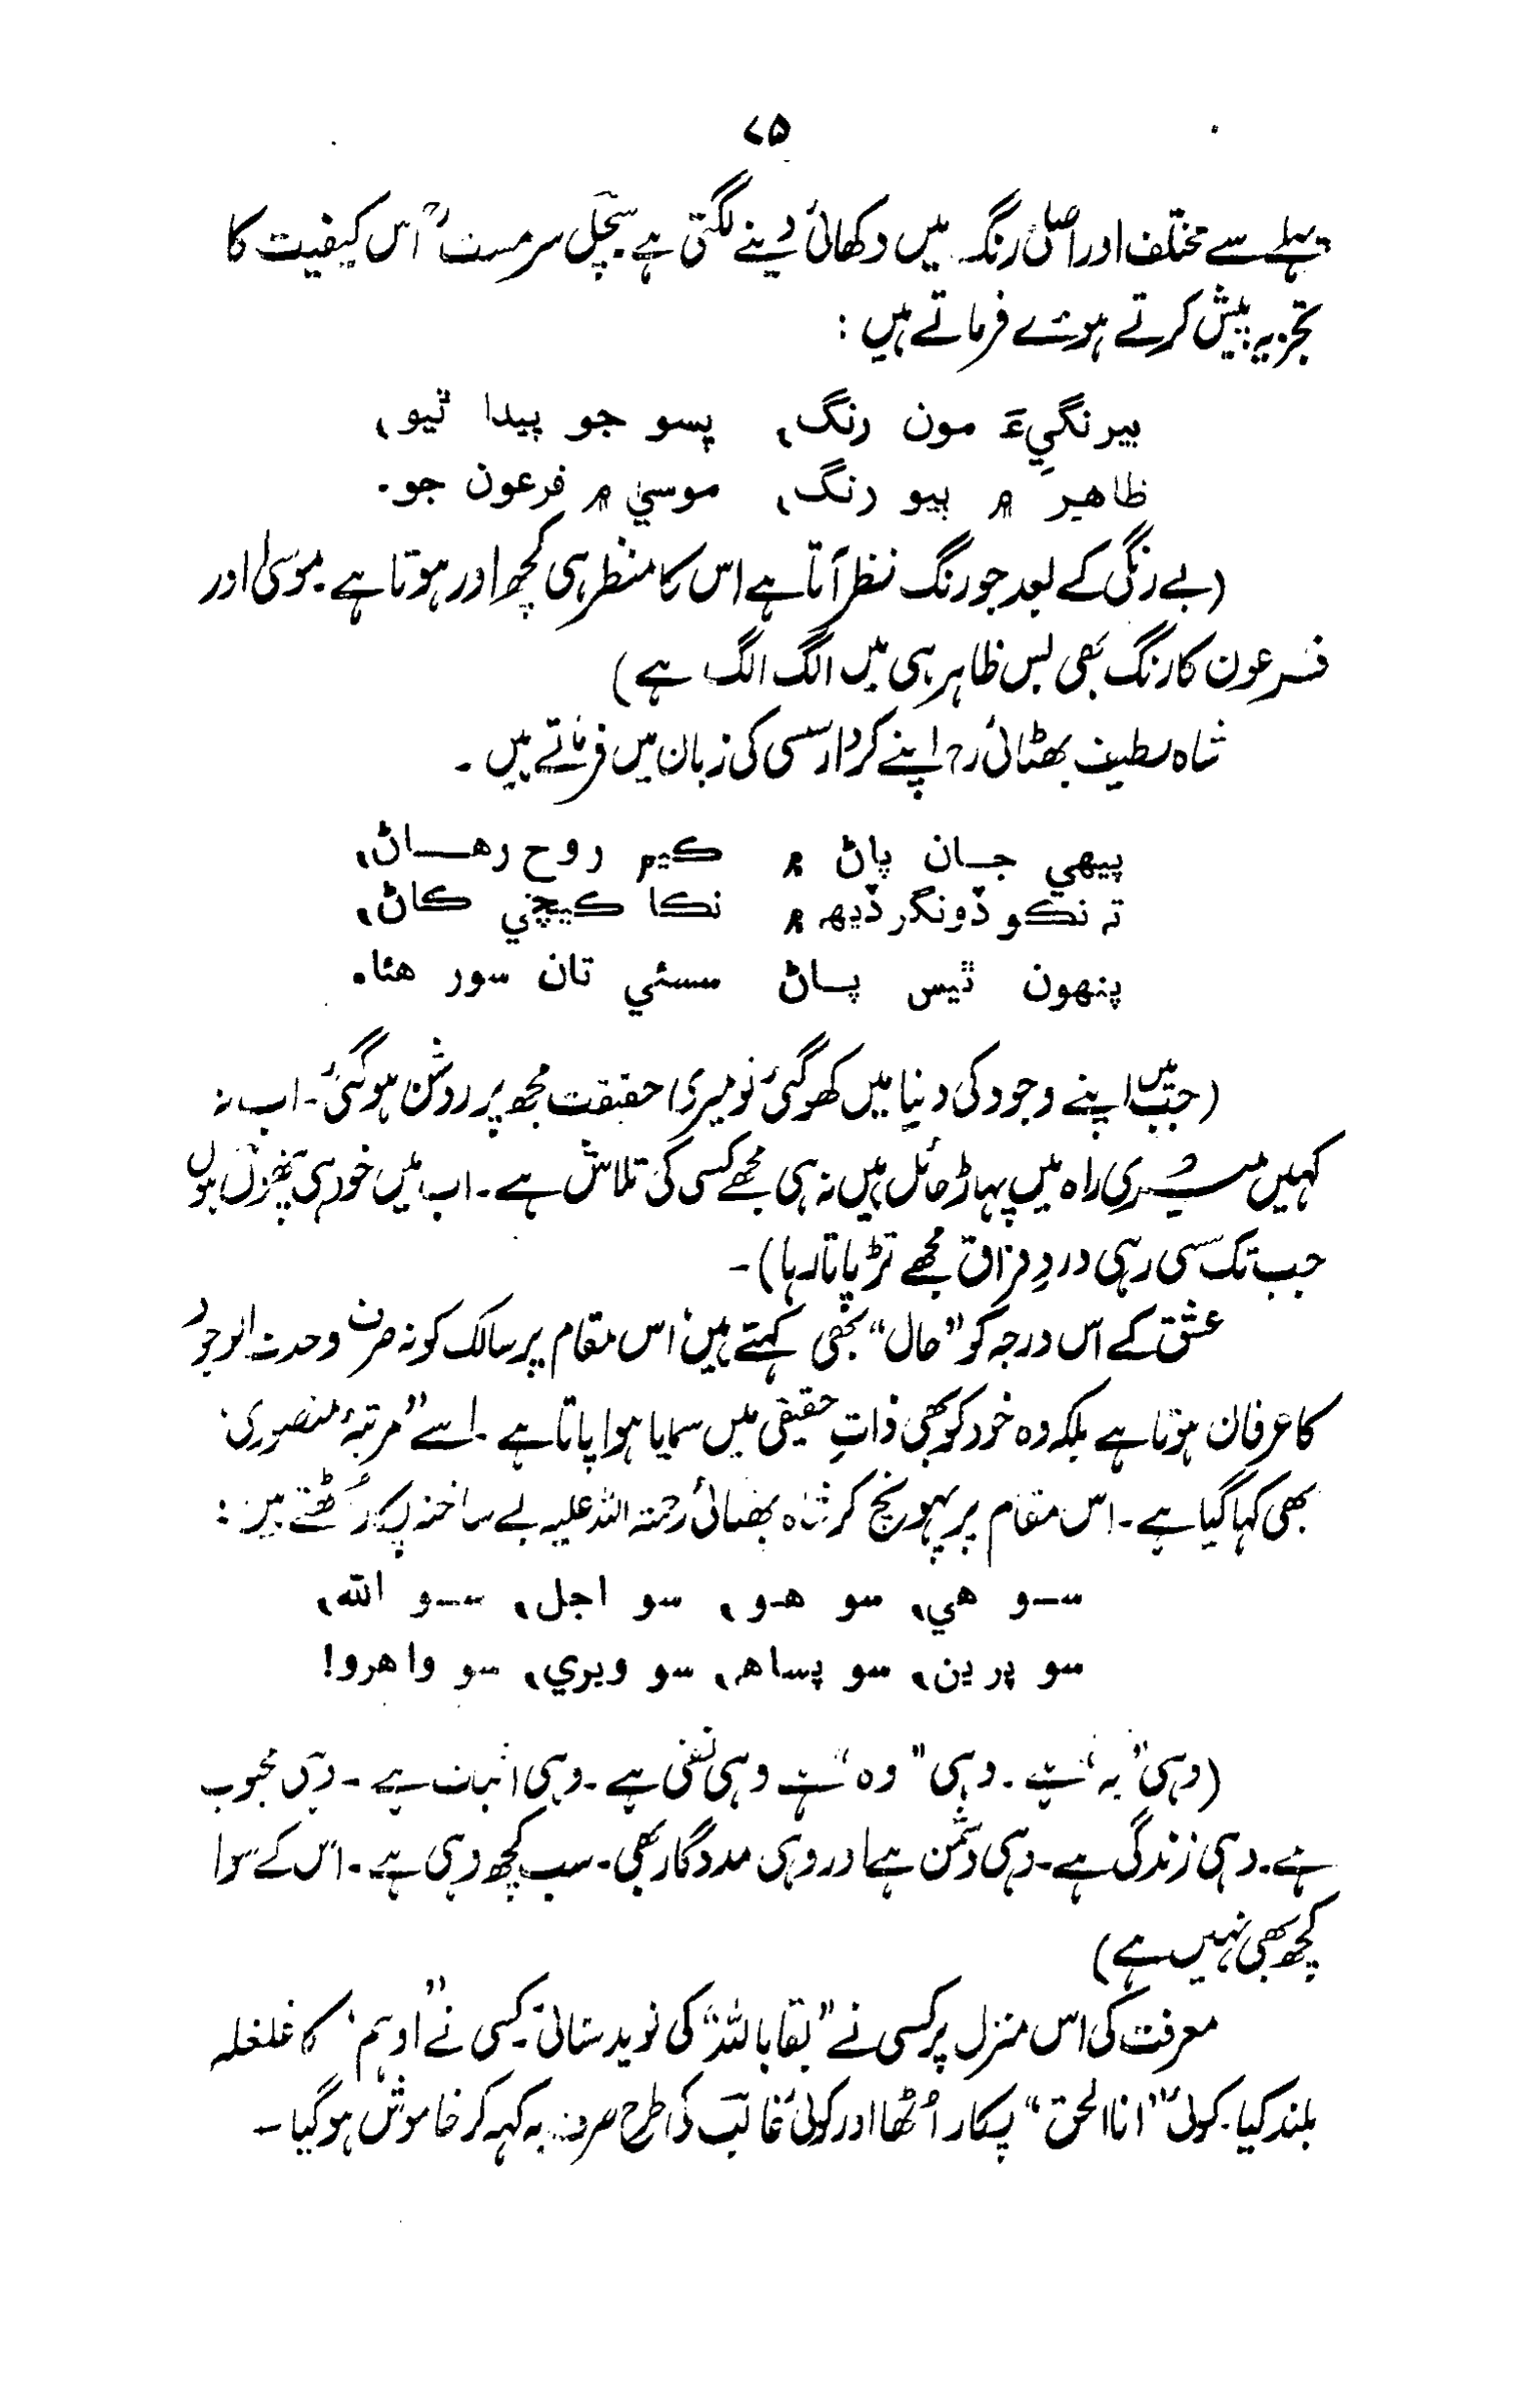 ۷۵
پہلے سے مختلف اور اصلی رنگ میں دکھائی دینے لگتی ہے سچل سرمستؒ اس کیفیت کا
تجزیہ پیش کرتے ہوئے فرماتے ہیں :
بيرنگيءَ مون رنگ، پسو جو پيدا ٿيو،
ظاهير ۾ ٻيو رنگ، موسيٰ ۾ فرعون جو.
(بے رنگی کے بعد جو رنگ نظر آتا ہے اس کا منظر ہی کچھ اور ہوتا ہے۔ موسیٰ اور
فرعون کا رنگ بھی بس ظاہر ہی میں الگ الگ ہے)
شاہ لطیف بھٹائی رح اپنے کردار سسی کی زبان میں فرماتے ہیں ۔
پيهي جان پاڻ ۾ ڪيم روح رهاڻ،
ته نڪو ڏونگر ڏيهه ۾ نڪا ڪيچي ڪاڻ،
پنهون ٿيس پاڻ سسئي تان سور هئا.
(جب میں اپنے وجود کی دنیا میں کھو گئی تو میری حقیقت مجھ پر روشن ہو گئی۔ اب نہ
کہیں میری راہ میں پہاڑ حائل ہیں نہ ہی مجھے کسی کی تلاش ہے۔ اب میں خود ہی پنھوں ہوں
جب تک سسی رہی دردِ فراق مجھے تڑپاتا رہا)۔
عشق کے اس درجہ کو "حال" بھی کہتے ہیں، اس مقام پر سالک کو نہ صرف وحدت الوجود
کا عرفان ہوتا ہے بلکہ وہ خود کو بھی ذاتِ حقیقی میں سمایا ہوا پاتا ہے ۔ اسے "مرتبۂ منصوری"
بھی کہا گیا ہے۔ اس مقام پر پہونچ کر شاہ بھٹائی رحمتہ اللہ علیہ بے ساختہ پکار اٹھتے ہیں :
سو هي، سو هو، سو اجل، سو الله،
سو پرين، سو پساهه، سو ويري، سو واهرو!
(وہی "یہ" ہے ۔ وہی "وہ" ہے وہی نفی ہے ۔ وہی اثبات ہے ۔ وہی محبوب
ہے۔ وہی زندگی ہے۔ وہی دشمن ہے اور وہی مددگار بھی۔ سب کچھ وہی ہے ۔ اس کے سوا
کچھ بھی نہیں ہے)
معرفت کی اس منزل پر کسی نے "بقا باللہ" کی نوید سنائی۔ کسی نے "اوہم" کا غلغلہ
بلند کیا۔ کوئی "انا الحق" پکار اُٹھا اور کوئی غالب کی طرح صرف یہ کہہ کر خاموش ہو گیا ۔